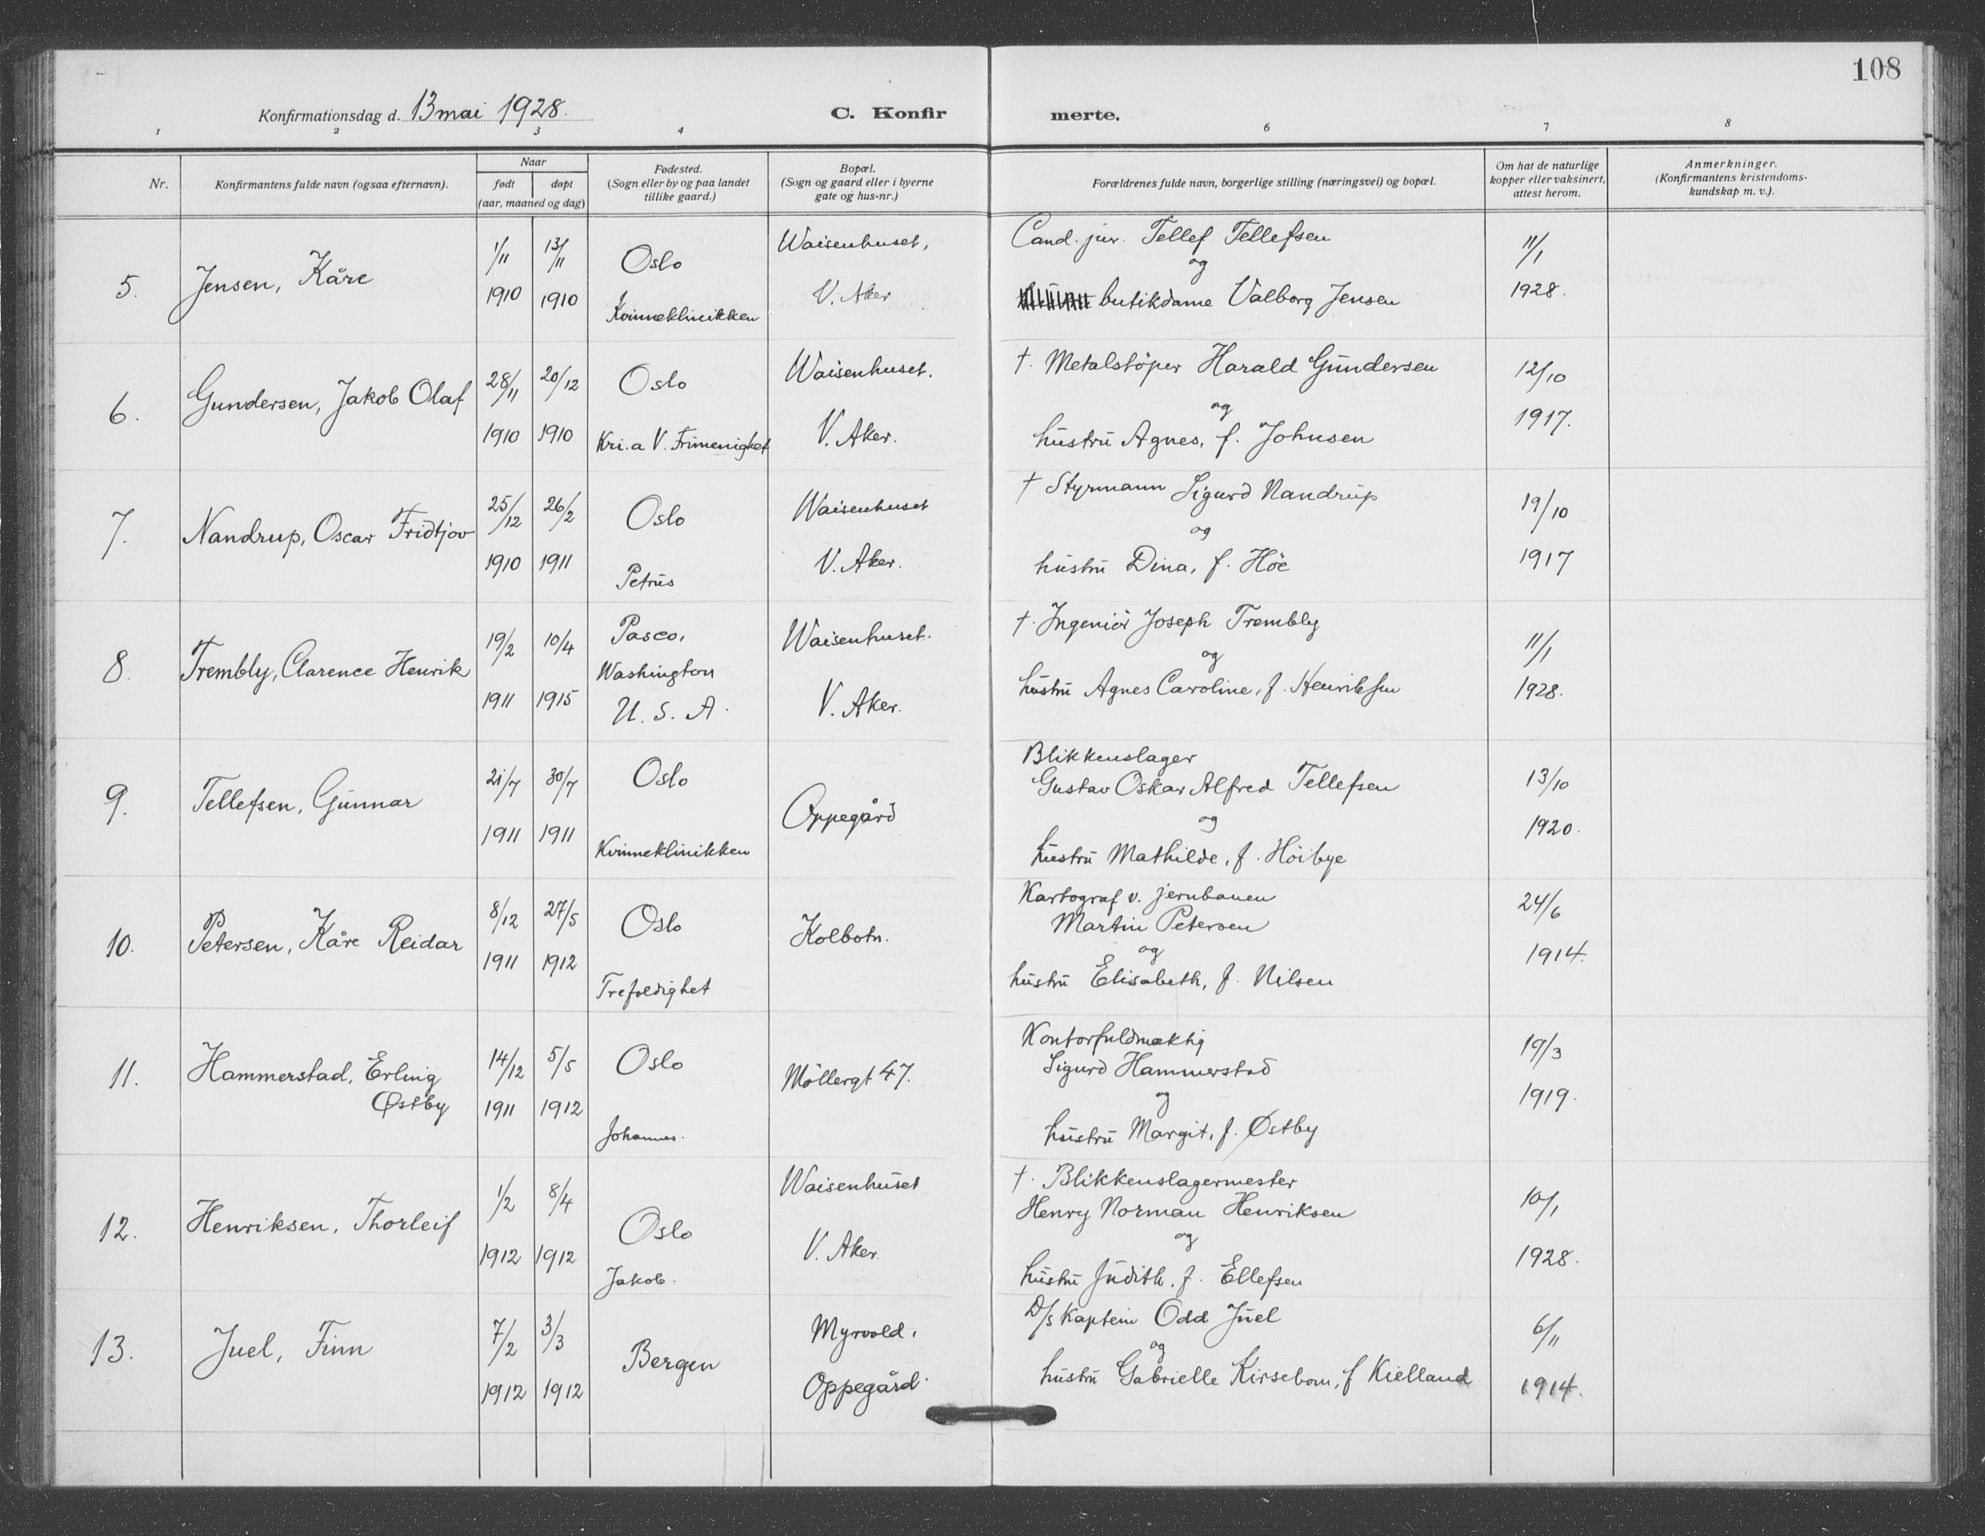 108
Konfirmationsdag d. 13 mai 1928. C. Konfirmerte.
1 2 3 4 6 7 8
Nr. Konfirmantens fulde navn (ogsaa efternavn). Naar født døpt (aar, maaned og dag) Fødested. (Sogn eller by og paa landet tillike gaard.) Bopæl. (Sogn og gaard eller i byerne gate og hus-nr.) Forældrenes fulde navn, borgerlige stilling (næringsvei) og bopæl. Om hat de naturlige kopper eller vaksinert, attest herom. Anmerkninger. (Konfirmantens kristendoms-kundskap m. v.).
5. Jensen, Kåre 1/11 1910 13/11 1910 Oslo Kvinneklinikken Waisenhuset, V. Aker Cand. jur. Tellef Tellefsen og butikdame Valborg Jensen 11/1 1928.
6. Gundersen, Jakob Olaf 28/11 1910 20/12 1910 Oslo Kri.a V. Frimenighet Waisenhuset. V. Aker. †. Metalstöper Harald Gundersen og hustru Agnes, f. Johnsen 12/10 1917.
7. Nandrup, Oscar Fridtjov 25/12 1910 26/2 1911 Oslo Petrus Waisenhuset V. Aker. † Styrmann Sigurd Nandrup og hustru Dina, f. Höe 19/10 1917
8. Trembly, Clarence Henrik 19/2 1911 10/4 1915 Pasco, Washington U. S. A. Waisenhuset. V. Aker. †. Ingeniör Joseph Trembly og hustru Agnes Caroline, f. Henriksen 11/1 1928.
9. Tellefsen, Gunnar 21/7 1911 30/7 1911 Oslo Kvinneklinikken Oppegård Blikkenslager Gustav Oskar Alfred Tellefsen og hustru Mathilde, f. Höibye 13/10 1920.
10. Petersen, Kåre Reidar 8/12 1911 27/5 1912 Oslo Trefoldighet Kolbotn. Kartograf v. jernbanen Martin Petersen og hustru Elisabeth, f. Nilsen 24/6 1914.
11. Hammerstad, Erling Østby 14/12 1911 5/5 1912 Oslo Johannes. Möllergt 47. Kontorfuldmæktig Sigurd Hammerstad og hustru Margit, f. Østby 19/3 1919.
12. Henriksen, Thorleif 1/2 1912 8/4 1912 Oslo Jakob. Waisenhuset V. Aker. †. Blikkenslagermester Henry Norman Henriksen og hustru Judith, f. Ellefsen 10/1 1928.
13. Juel, Finn 7/2 1912 3/3 1912 Bergen Myrvold, Oppegård. D/s Kaptein Odd Juel og hustru Gabrielle Kirsebom, f Kielland 6/11 1914.